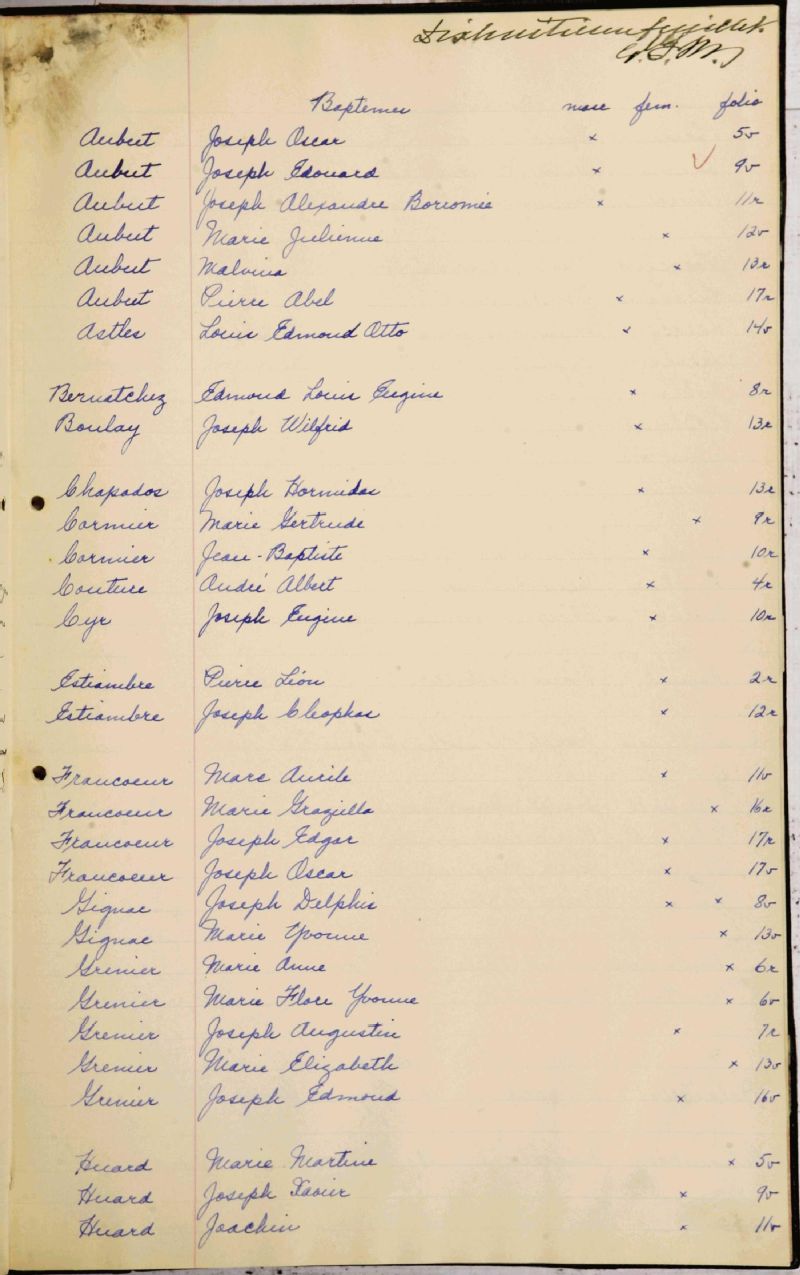 Dixhuitieme feuillet.
Baptemes masc fem. folio
Aubut Joseph Oscar x 5v
Aubut Joseph Edouard x ✓ 9v
Aubut Joseph Alexandre Borromée x 11r
Aubut Marie Julienne x 12v
Aubut Malvina x 13r
Aubut Pierre Abel x 17r
Astles Louis Edmond Otto x 14v
Bernatchez Edmond Louis Eugine x 8r
Boulay Joseph Wilfrid x 13r
Chapados Joseph Hormidas x 13r
Cormier Marie Gertrude x 9r
Cormier Jean-Baptiste x 10r
Couture André Albert x 4r
Cyr Joseph Eugine x 10r
Estiambre Pierre Léon x 2r
Estiambre Joseph Cleophas x 12r
Francoeur Marc Aurile x 11v
Francoeur Marie Graziella x 16r
Francoeur Joseph Edgar x 17r
Francoeur Joseph Oscar x 17v
Gignac Joseph Delphis x x 8v
Gignac Marie Yvonne x 13v
Grenier Marie Anne x 6r
Grenier Marie Flore Yvonne x 6v
Grenier Joseph Augustin x 7r
Grenier Marie Elizabeth x 13v
Grenier Joseph Edmond x 16v
Huard Marie Martine x 5v
Huard Joseph Xavier x 9v
Huard Joachin x 11v